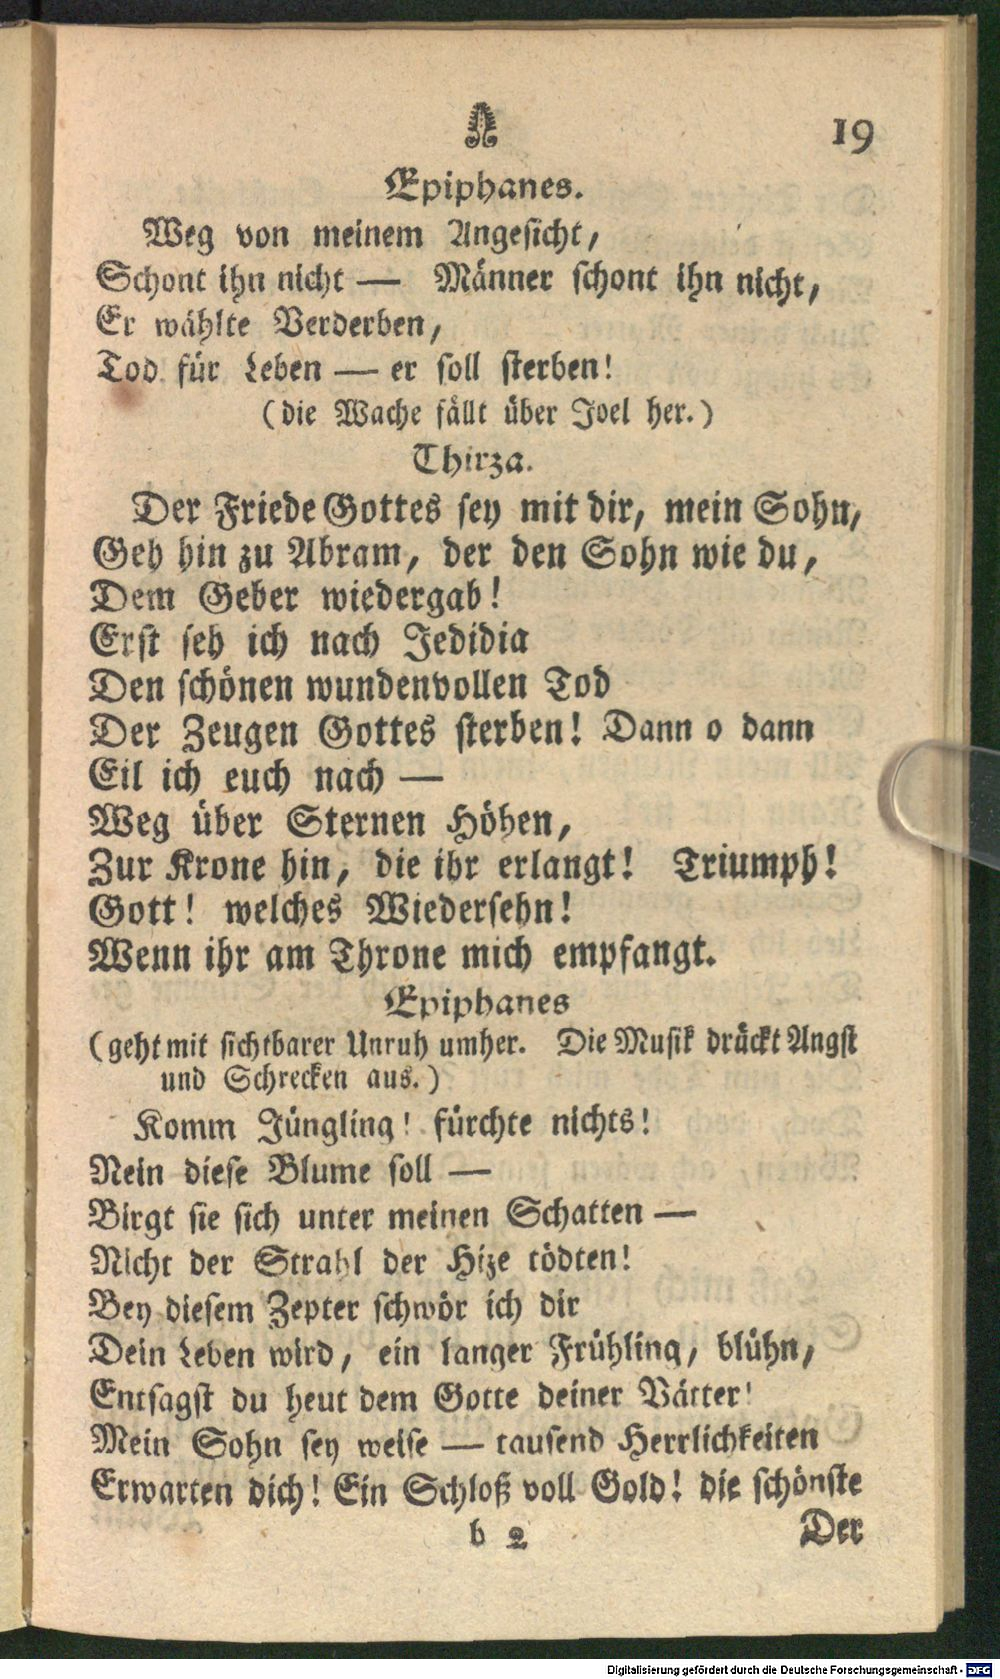 19
Epiphanes.
Weg von meinem Angesicht,
Schont ihn nicht — Männer schont ihn nicht,
Er wählte Verderben,
Tod für Leben — er soll sterben!
(die Wache fällt über Joel her.)
Thirza.
Der Friede Gottes sey mit dir, mein Sohn,
Geh hin zu Abram, der den Sohn wie du,
Dem Geber wiedergab!
Erst seh ich nach Jedidia
Den schönen wundenvollen Tod
Der Zeugen Gottes sterben! Dann o dann
Eil ich euch nach —
Weg über Sternen Höhen,
Zur Krone hin, die ihr erlangt! Triumph!
Gott! welches Wiedersehn!
Wenn ihr am Throne mich empfangt.
Epiphanes
(geht mit sichtbarer Unruh umher. Die Musik drückt Angst
und Schrecken aus.)
Komm Jüngling! fürchte nichts!
Nein diese Blume soll —
Birgt sie sich unter meinen Schatten —
Nicht der Strahl der Hize tödten!
Bey diesem Zepter schwör ich dir
Dein Leben wird, ein langer Frühling, blühn,
Entsagst du heut dem Gotte deiner Vätter!
Mein Sohn sey weise — tausend Herrlichkeiten
Erwarten dich! Ein Schloß voll Gold! die schönste
b 2 Der
Digitalisierung gefördert durch die Deutsche Forschungsgemeinschaft - DFG